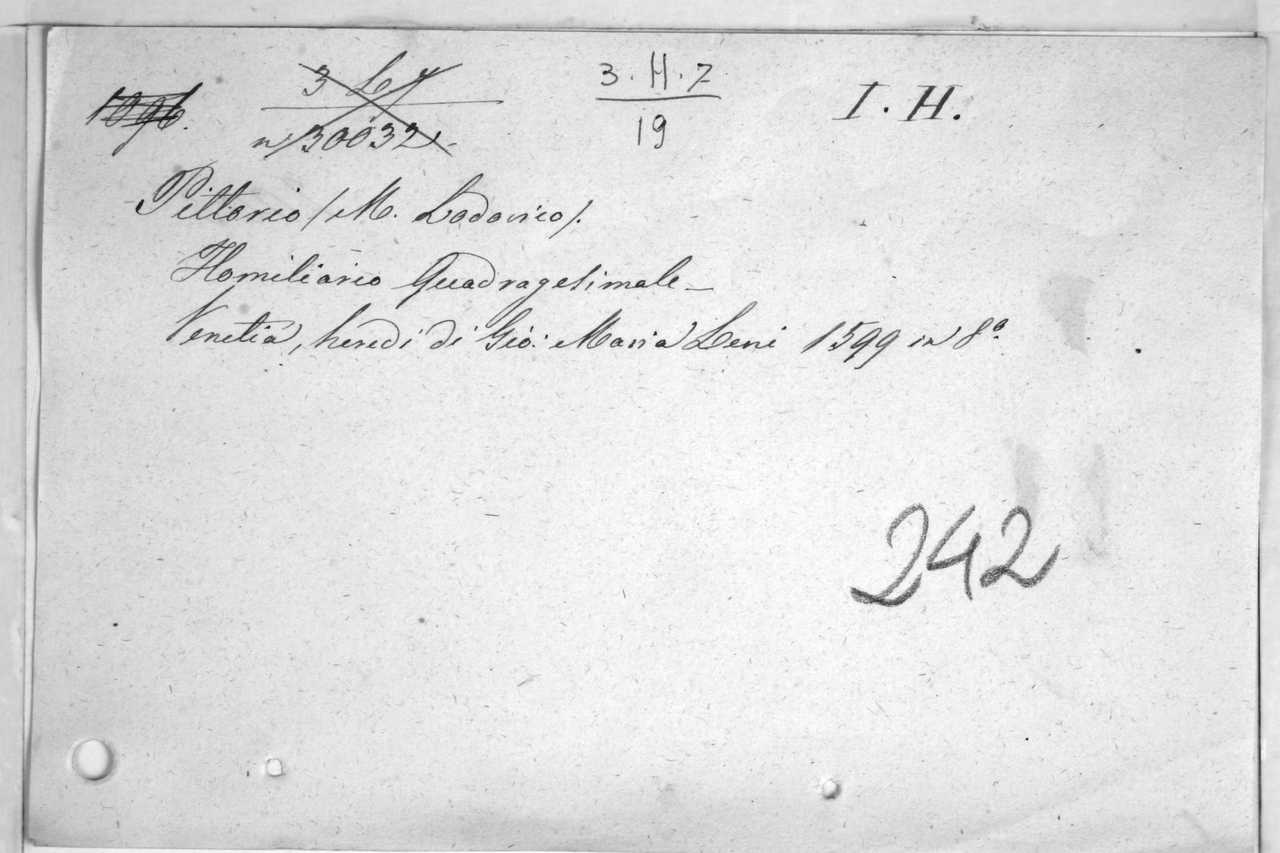 3. H. 7
19
I. H.
n/30032/.
Pittorio (M. Lodovico).
Homiliario Quadragesimale_
Venetia, heredi di Gio: Maria Leni 1599 in 8°.
242